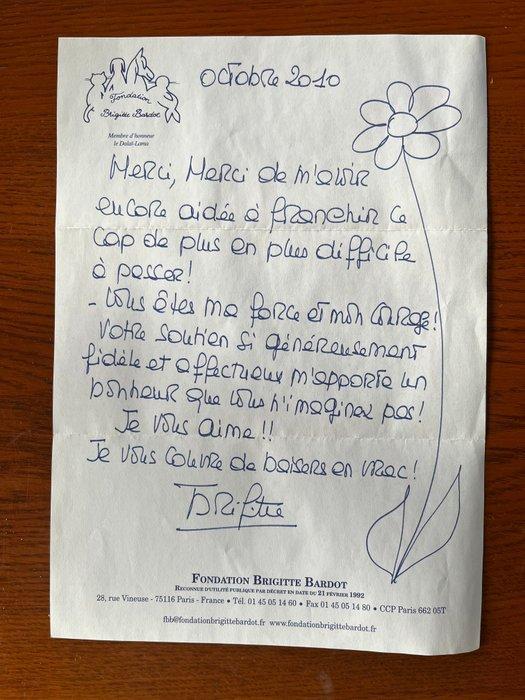 Fondation
Brigitte Bardot
Membre d'honneur
le Dalaï-Lama
Octobre 2010
Merci, Merci de m'avoir
encore aidée à franchir ce
cap de plus en plus difficile
à passer!
- Vous êtes ma force et mon courage!
Votre soutien si généreusement
fidèle et affectueux m'apporte un
bonheur que vous n'imaginez pas!
Je vous aime!!
Je vous couvre de baisers en vrac!
Brigitte
FONDATION BRIGITTE BARDOT
RECONNUE D'UTILITÉ PUBLIQUE PAR DÉCRET EN DATE DU 21 FÉVRIER 1992
28, rue Vineuse - 75116 Paris - France • Tél. 01 45 05 14 60 • Fax 01 45 05 14 80 • CCP Paris 662 05T
fbb@fondationbrigittebardot.fr www.fondationbrigittebardot.fr